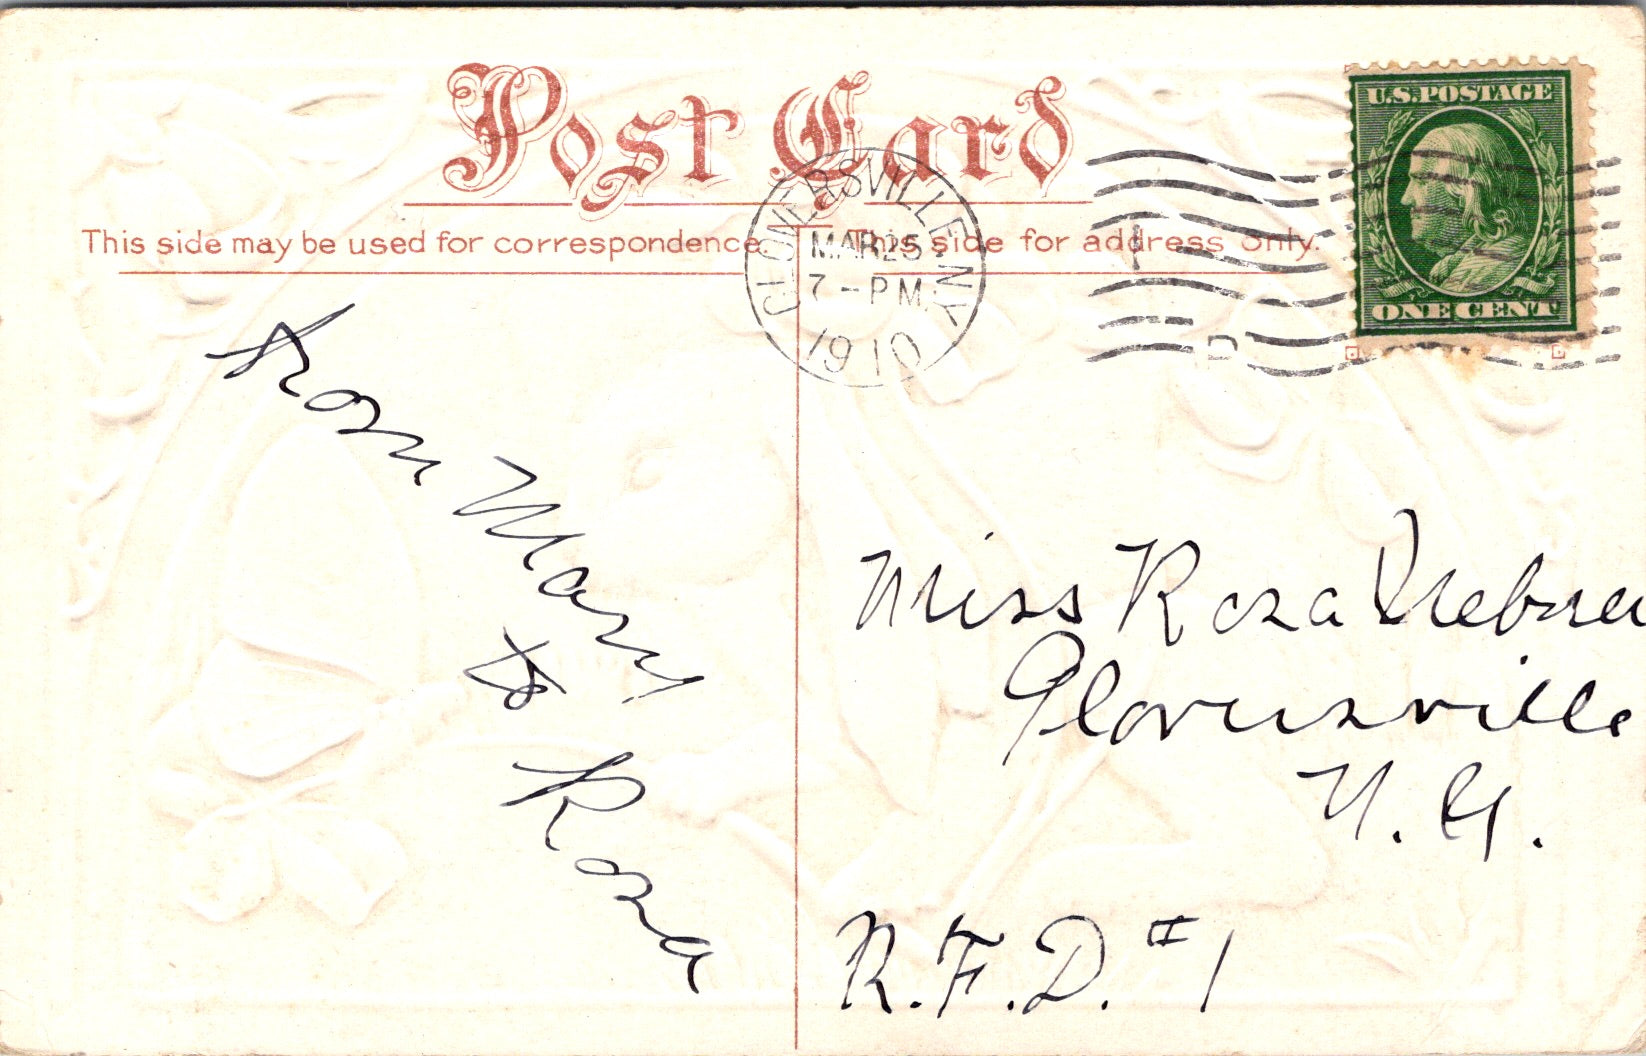 Post Card
This side may be used for correspondence.
This side for address only.
GLOVERSVILLE, N.Y.
MAR 25
7 - PM
1910
U.S. POSTAGE
ONE CENT
D
from Mary
to Rosa
Miss Rosa
Gloversville
N. Y.
R.F.D. #1